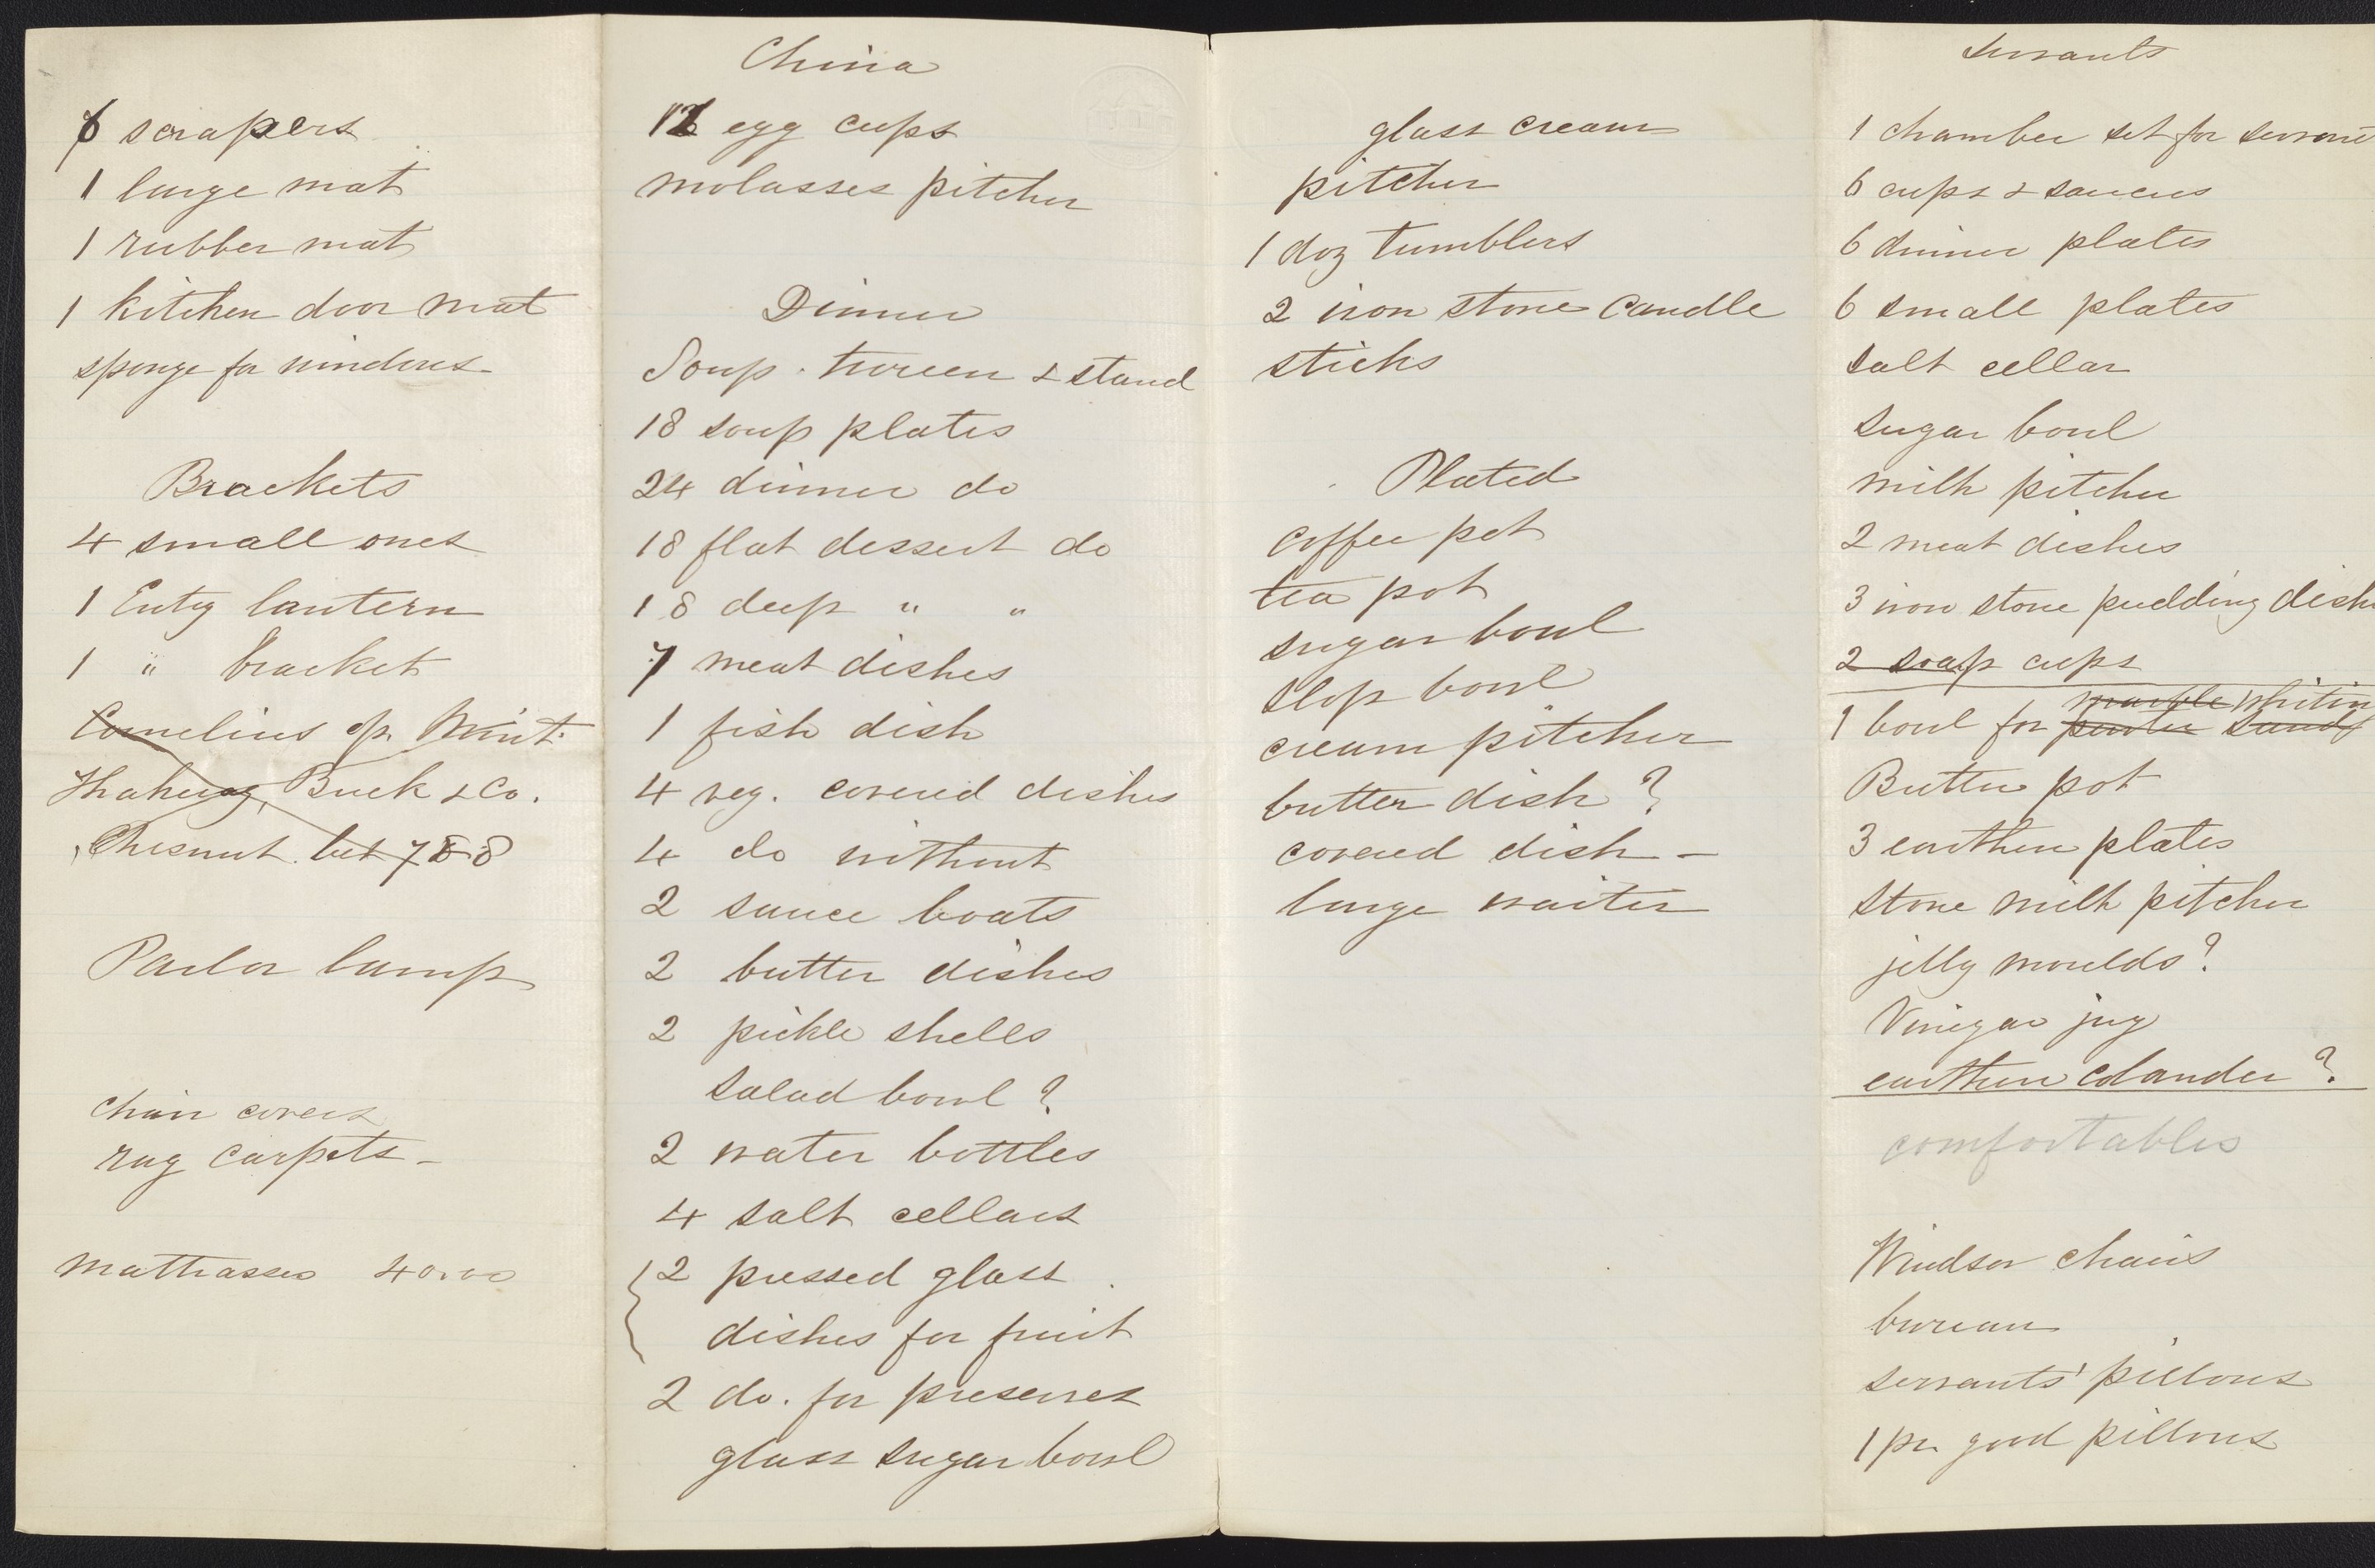 6 scrapers
1 large mat
1 rubber mat
1 kitchen door mat
sponge for windows
Brackets
4 small ones
1 Entry lantern
1 " bracket
Cornelius op. Mint.
Buck & Co.
Chesnut. bet 7 & 8
Parlor lamp
chair covers
rag carpets -
Mattrasses 40.00
China
12 egg cups
molasses pitcher
Dinner
Soup tureen & stand
18 soup plates
24 dinner do
18 flat dessert do
18 deep " "
7 meat dishes
1 fish dish
4 veg. covered dishes
4 do without
2 sauce boats
2 butter dishes
2 pickle shells
salad bowl ?
2 water bottles
4 salt cellars
2 pressed glass
dishes for fruit
2 do. for preserves
glass sugar bowl
glass cream
pitcher
1 doz tumblers
2 iron stone candle
sticks
Plated
coffee pot
tea pot
sugar bowl
slop bowl
cream pitcher
butter dish ?
covered dish -
large waiter
Servants
1 chamber set for servant
6 cups & saucers
6 dinner plates
6 small plates
salt cellar
sugar bowl
milk pitcher
2 meat dishes
3 iron stone pudding dish
2 soap cups
marble whitin
1 bowl for pewter sand
Butter pot
3 earthen plates
stone milk pitcher
jelly moulds?
Vinegar jug
earthen colander ?
comfortables
Windsor chairs
bureau
servants' pillows
1 pr. good pillows